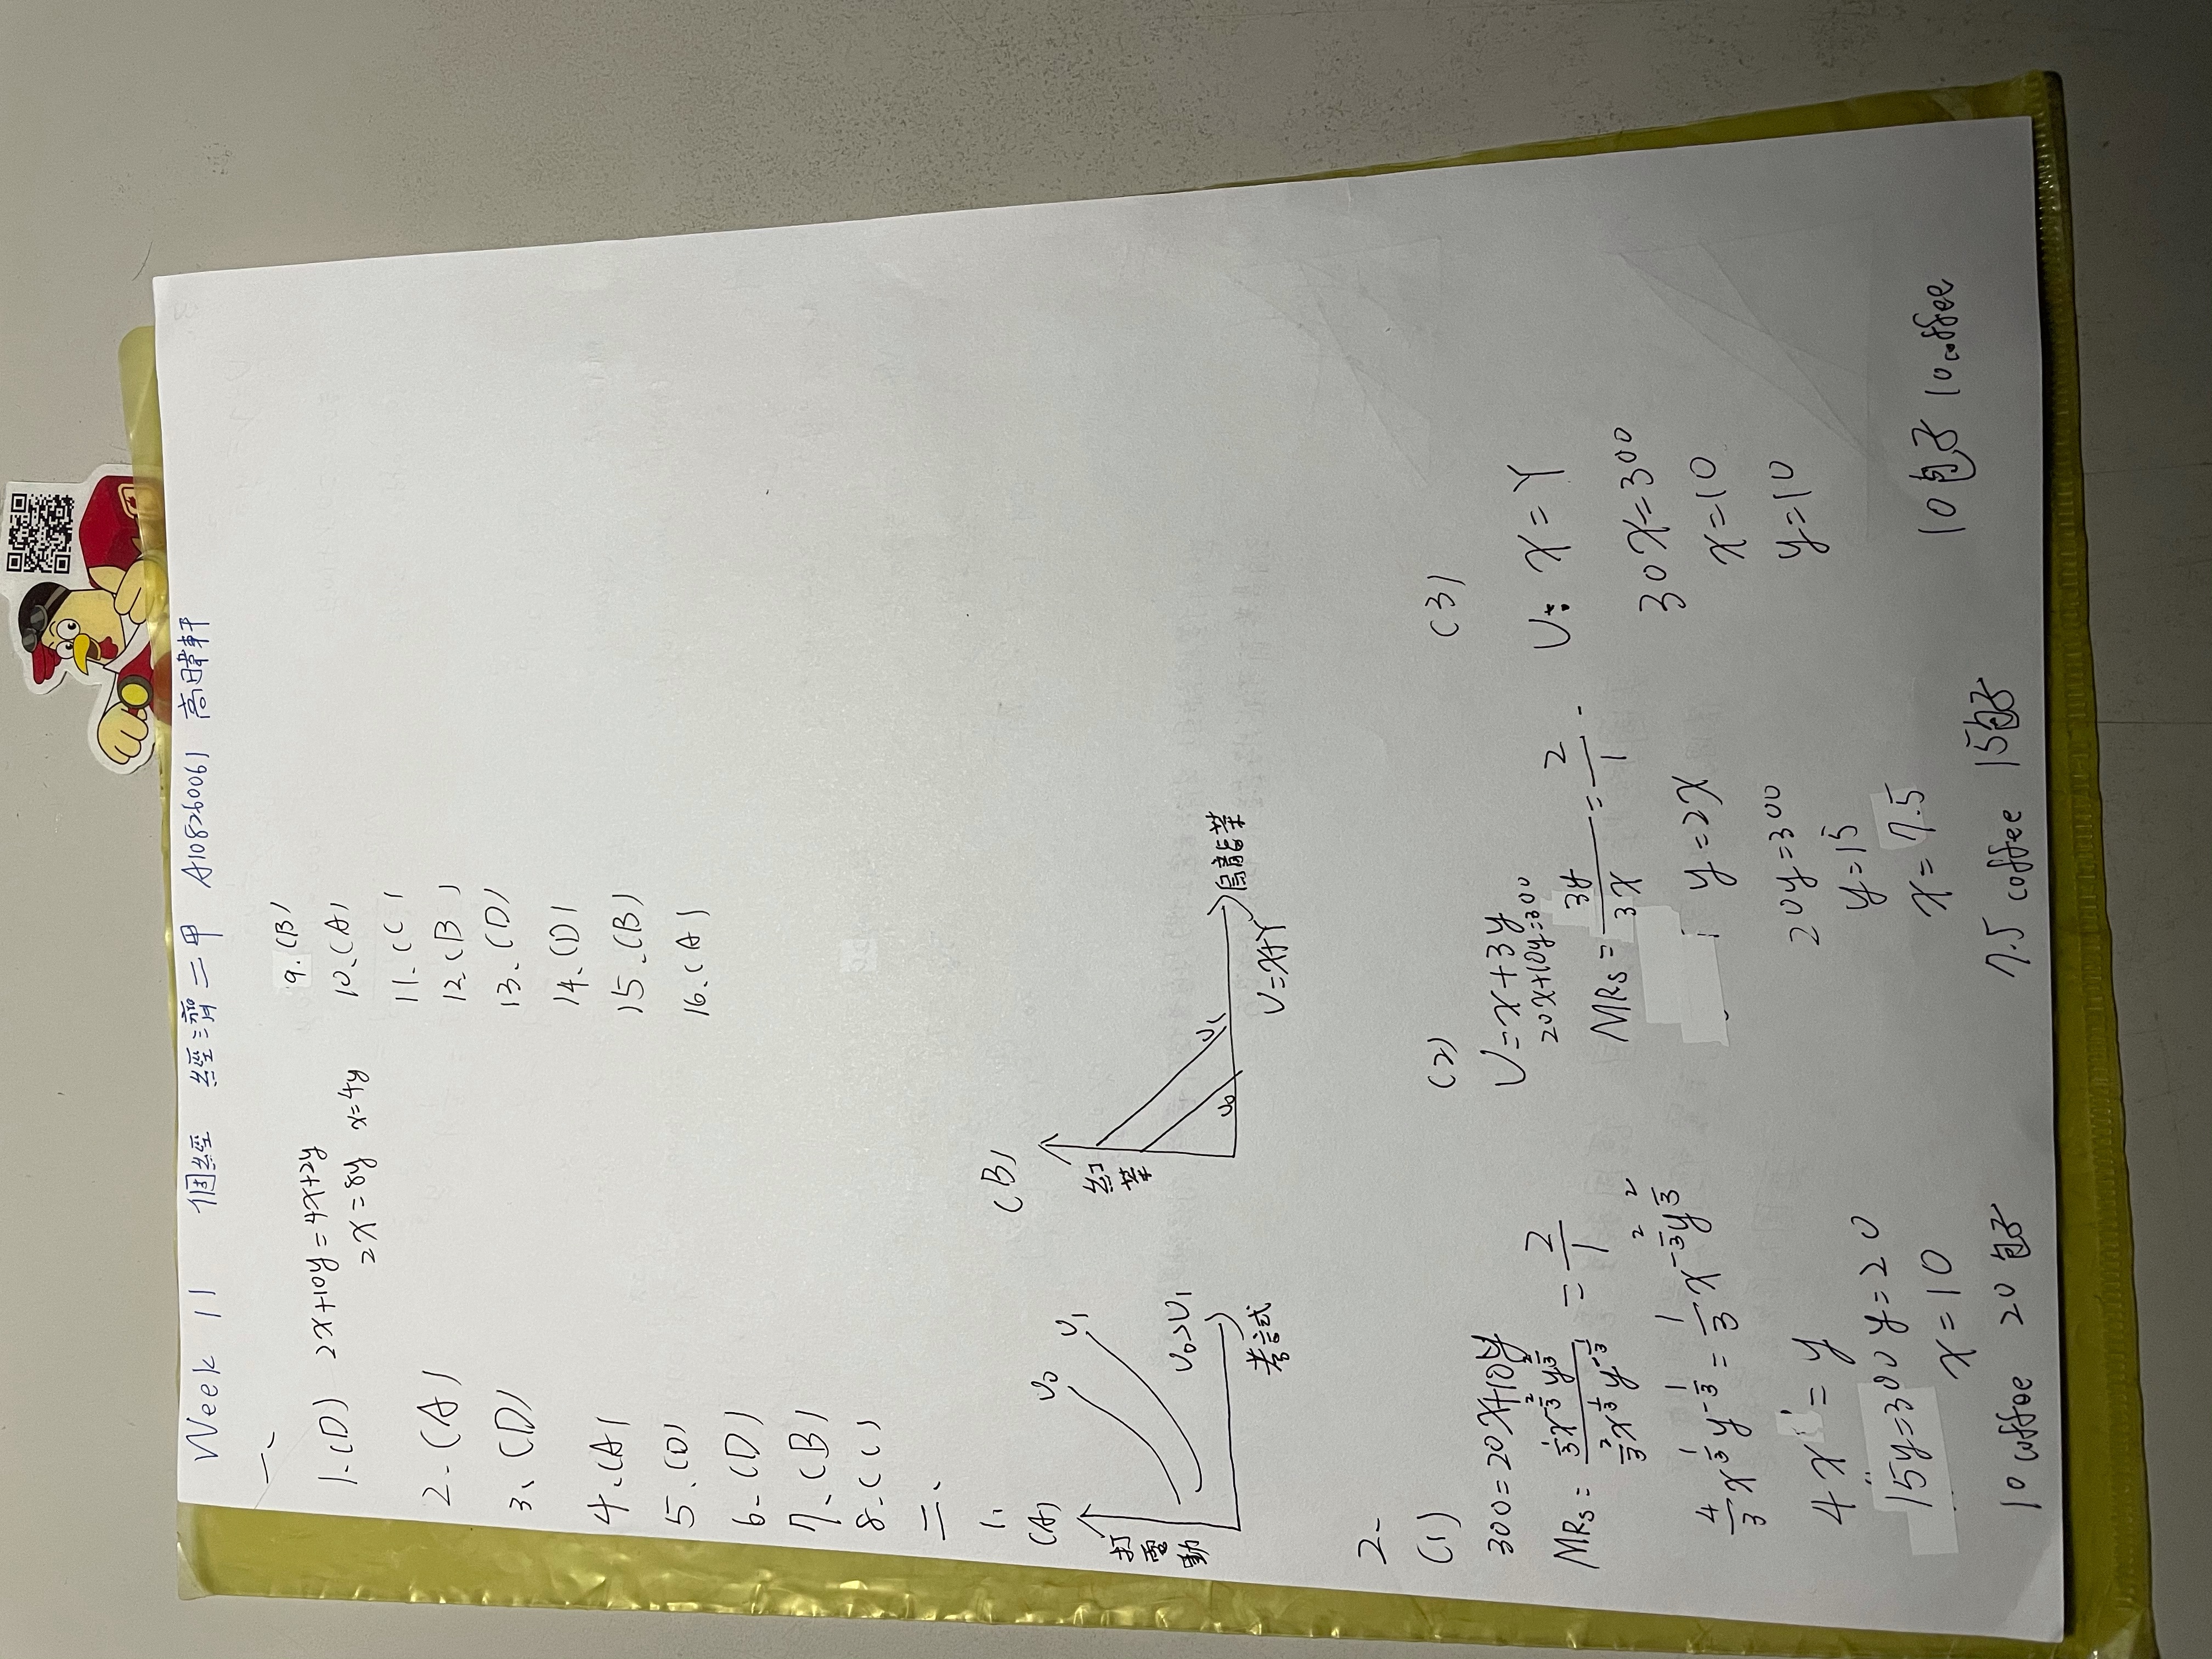 Week 11 個經 經濟二甲 A108260061 高暐軒
一、
1.(D) 2x+10y=4x+2y
2x=8y x=4y
2.(A)
3、(D)
4、(A)
5、(D)
6.(D)
7、(B)
8.(C)
9.(B)
10、(A)
11.(C)
12.(B)
13、(D)
14、(D)
15、(B)
16、(A)
二、
1、
(A)
打電動
U₀
U₁
U₀>U₁
考試
(B)
紅茶
U₀
U₁
烏龍茶
U=X+Y
2.
(1)
300=20x+10y
MRs = (1/3 x^(-2/3) y^(2/3)) / (2/3 x^(1/3) y^(-1/3)) = 2/1
4/3 x^(1/3) y^(-1/3) = 1/3 x^(-2/3) y^(2/3)
4x = y
15y=300 y=20
x=10
10 coffee 20 包子
(2)
U=x+3y
20x+10y=300
MRs = 3y/3x = 2/1
y=2x
20y=300
y=15
x=7.5
7.5 coffee 15包子
(3)
U: X=Y
30x=300
x=10
y=10
10包子 10 coffee